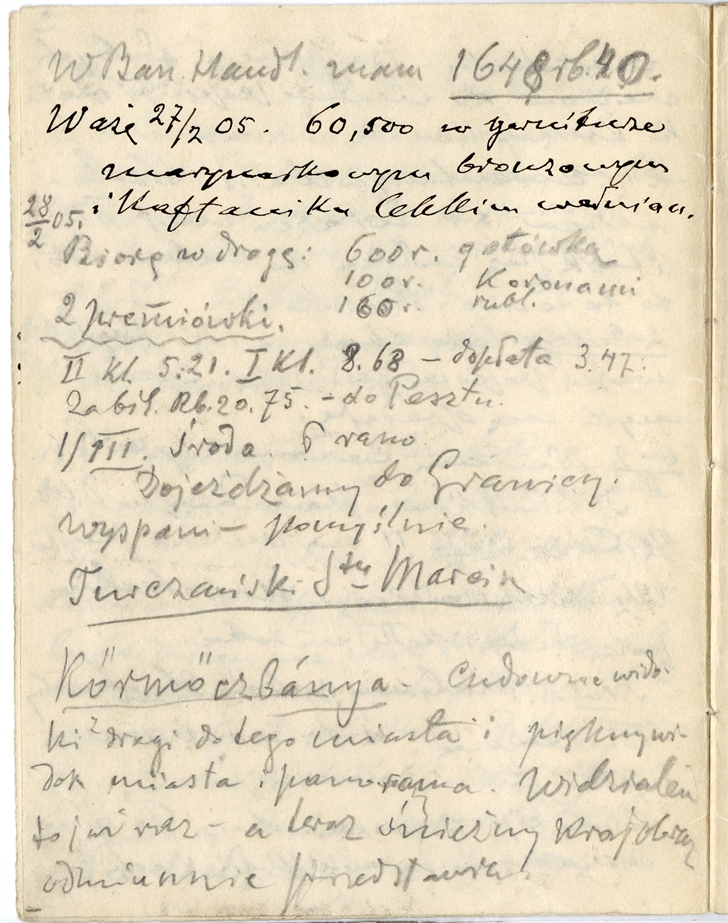 W Ban. Handl. mam 1648 rb. 40.
Ważę 27/2 05. 60,500 w garniturze
marynarkowym bronzowym
i Kaftaniku lekkim wełnian.
28/2 05.
Biorę w drogę: 600 r. gotówką
100 r. Koronami
160 r. rubl.
2 premiówki.
II Kl 5.21. I Kl. 8.68 – dopłata 3.47.
Zabil. Rb. 20.75. – do Pesztu.
1/III. Środa. 6 rano.
Dojeżdżamy do Granicy.
wyspani – pomyślnie.
Turczański Stu Marcin
Körmöczbánya – Cudowne wido-
ki z drogi do tego miasta i piękny wi-
dok miasta i panorama. Widziałem
to już raz – a teraz śnieżny Krajobraz
odmiennie przedstawia